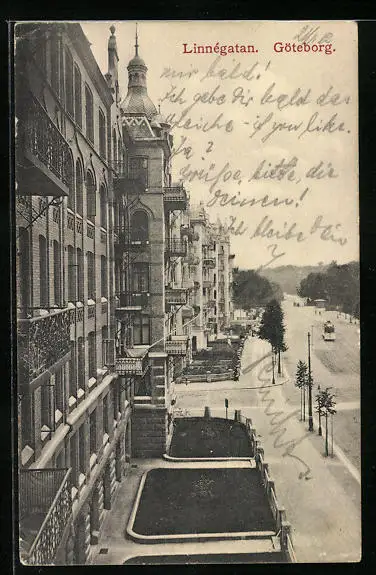 Linnégatan. Göteborg.
mir bald!
Ich gebe Dir bald das
gleiche - if you like.
Ja?
Grüße, bitte, die
Deinen!
Ich bleibe Dein